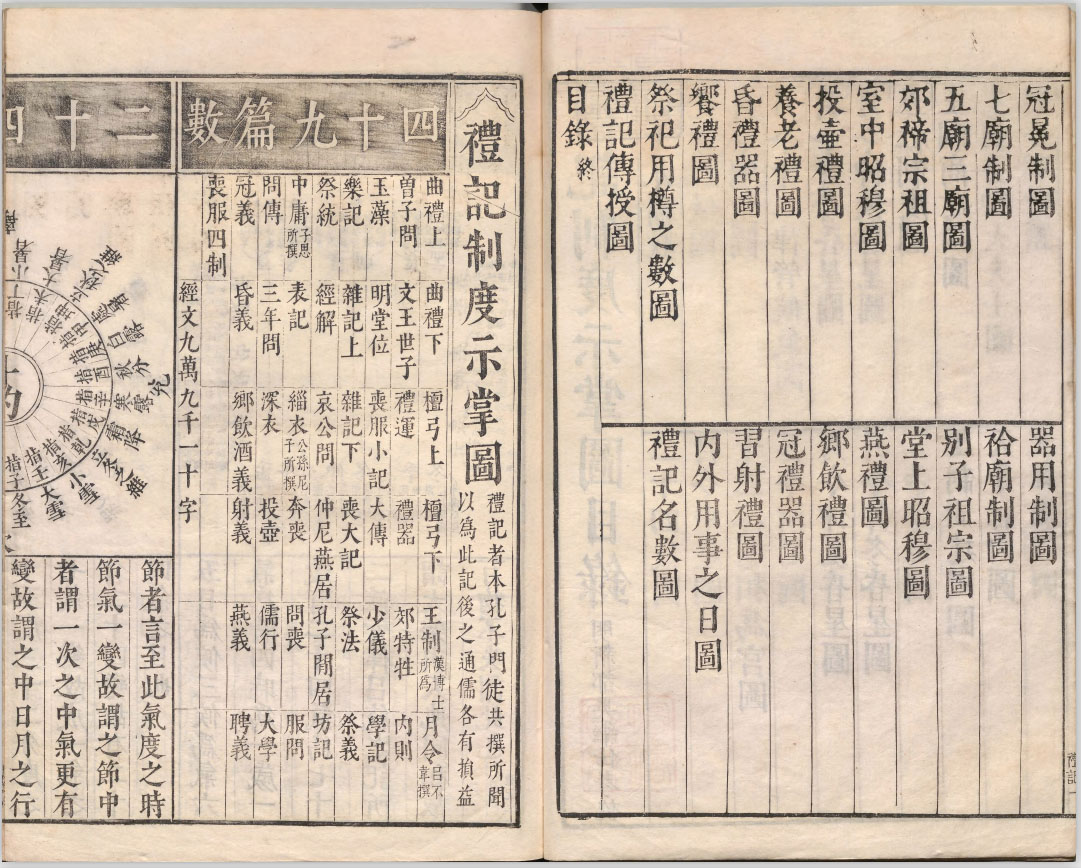 冠冕制圖
七廟制圖
五廟三廟圖
郊禘宗祖圖
室中昭穆圖
投壷禮圖
養老禮圖
昏禮器圖
饗禮圖
祭祀用樽之數圖
禮記傳授圖
目錄終
器用制圖
祫廟制圖
別子祖宗圖
堂上昭穆圖
燕禮圖
鄉飲禮圖
冠禮器圖
習射禮圖
內外用事之日圖
禮記名數圖
禮記
禮記制度示掌圖
禮記者本孔子門徒共撰所聞
以為此記後之通儒各有損益
四十九篇數
曲禮上 曲禮下 檀弓上 檀弓下 王制漢博士所為 月令呂不韋撰
曾子問 文王世子 禮運 禮器 郊特牲 內則
玉藻 明堂位 喪服小記 大傳 少儀 學記
樂記 雜記上 雜記下 喪大記 祭法 祭義
祭統 經解 哀公問 仲尼燕居 孔子閒居 坊記
中庸子思所撰 表記 緇衣公孫尼子所撰 奔喪 問喪 服問
間傳 三年問 深衣 投壺 儒行 大學
冠義 昏義 鄉飲酒義 射義 燕義 聘義
喪服四制
經文九萬九千一十字
二十四
小暑
大暑
立秋
處暑
白露
秋分
寒露
霜降
立冬
小雪
大雪
冬至
指丁
指未
指坤
指申
指庚
指酉
指辛
指戌
指乾
指亥
指壬
指子
節者言至此氣度之時
節氣一變故謂之節中
者謂一次之中氣更有
變故謂之中日月之行